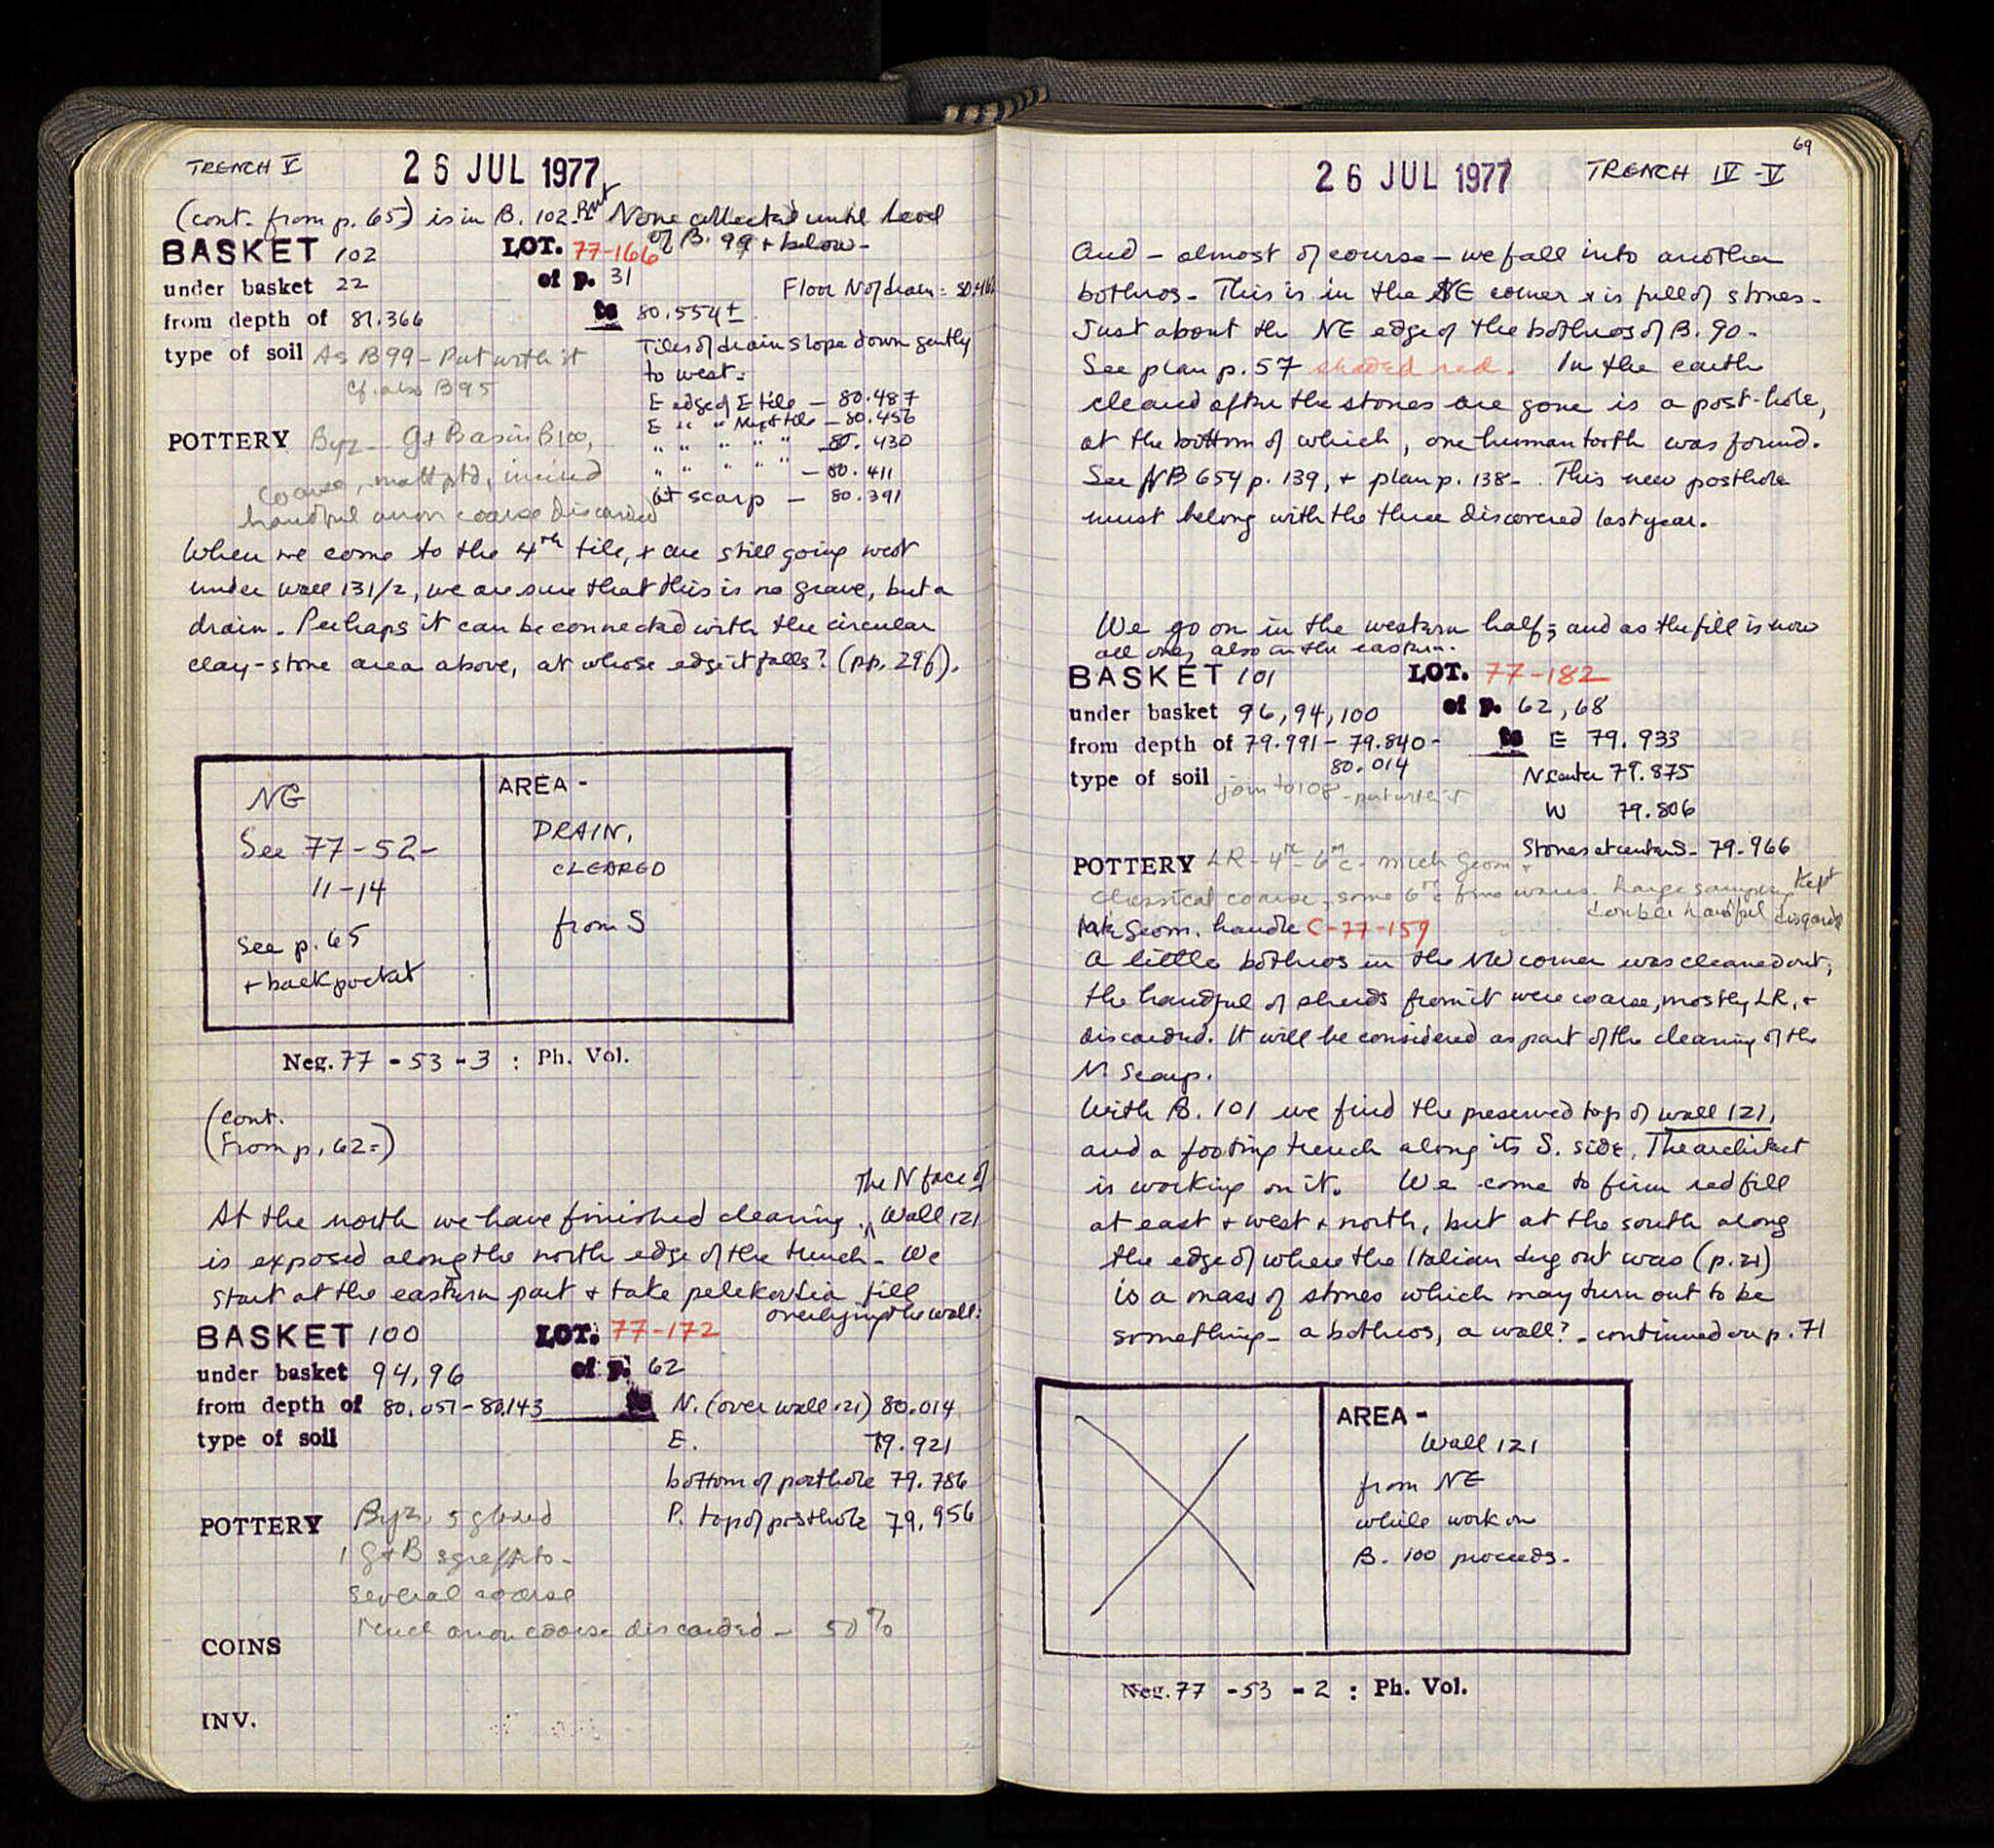 TRENCH V 26 JUL 1977
(cont. from p. 65) is in B. 102. But None collected until level
of B. 99 + below-
BASKET 102 LOT. 77-166
under basket 22 of p. 31
Floor N of drain =
from depth of 81.366 to 80.554±
type of soil As B99 - Put with it
cf. also B95
Tiles of drain slope down gently
to west:
E edge of E tile - 80.487
E " " Next tile - 80.456
" " " " " 80.430
" " " " " - 80.411
at scarp - 80.391
POTTERY Byz - G+Basin B100,
coarse, matt ptd, incised
handful anon coarse discarded
When we come to the 4th tile, + are still going west
under wall 131/2, we are sure that this is no grave, but a
drain. Perhaps it can be connected with the circular
clay-stone area above, at whose edge it falls? (pp. 29f).
NG
See 77-52-
11-14
see p. 65
+ back pocket
AREA -
DRAIN,
CLEARED
from S
Neg. 77 - 53 - 3 : Ph. Vol.
(cont.
(From p. 62:)
The N face of
At the north we have finished clearing. Wall 121
is exposed along the north edge of the trench - We
start at the eastern part + take pelekoudia fill
overlying the wall:
BASKET 100 LOT. 77-172
under basket 94,96 of p. 62
from depth of 80.051-80.143 to N. (over wall 121) 80.014
type of soil E. 79.921
bottom of posthole 79.786
P. top of posthole 79.956
POTTERY Byz. 5 glazed
1 G+B sgraffito-
several coarse
Much anon coarse discarded - 50%
COINS
INV.
69
26 JUL 1977 TRENCH IV - V
And - almost of course - we fall into another
bothros - This is in the NE corner + is full of stones -
Just about the NE edge of the bothros of B. 90 -
See plan p. 57 shaded red. In the earth
cleared after the stones are gone is a post-hole,
at the bottom of which, one human tooth was found.
See NB 654 p. 139, + plan p. 138-. This new posthole
must belong with the three discovered last year.
We go on in the western half; and as the fill is now
all one, also in the eastern.
BASKET 101 LOT. 77-182
under basket 96,94,100 of p. 62,68
from depth of 79.991 - 79.840 - to E 79.933
80.014
type of soil join to 108 - put with it
N center 79.875
W 79.806
Stones at center S - 79.966
POTTERY LR - 4th - 6th c. - much Geom +
Classical coarse - some 6th c fine wares. Large sampling kept
double handful disgarded
late Geom. handle C-77-159
A little bothros in the NW corner was cleaned out;
the handful of sherds from it were coarse, mostly LR, +
discarded. It will be considered as part of the cleaning of the
N Scarp.
With B. 101 we find the preserved top of wall 121,
and a footing trench along its S. side. The architect
is working on it. We come to firm red fill
at east + west + north, but at the south along
the edge of where the Italian dug out was (p. 21)
is a mass of stones which may turn out to be
something - a bothros, a wall? - continued on p. 71
AREA -
Wall 121
from NE
while work on
B. 100 proceeds.
Neg. 77 - 53 - 2 : Ph. Vol.